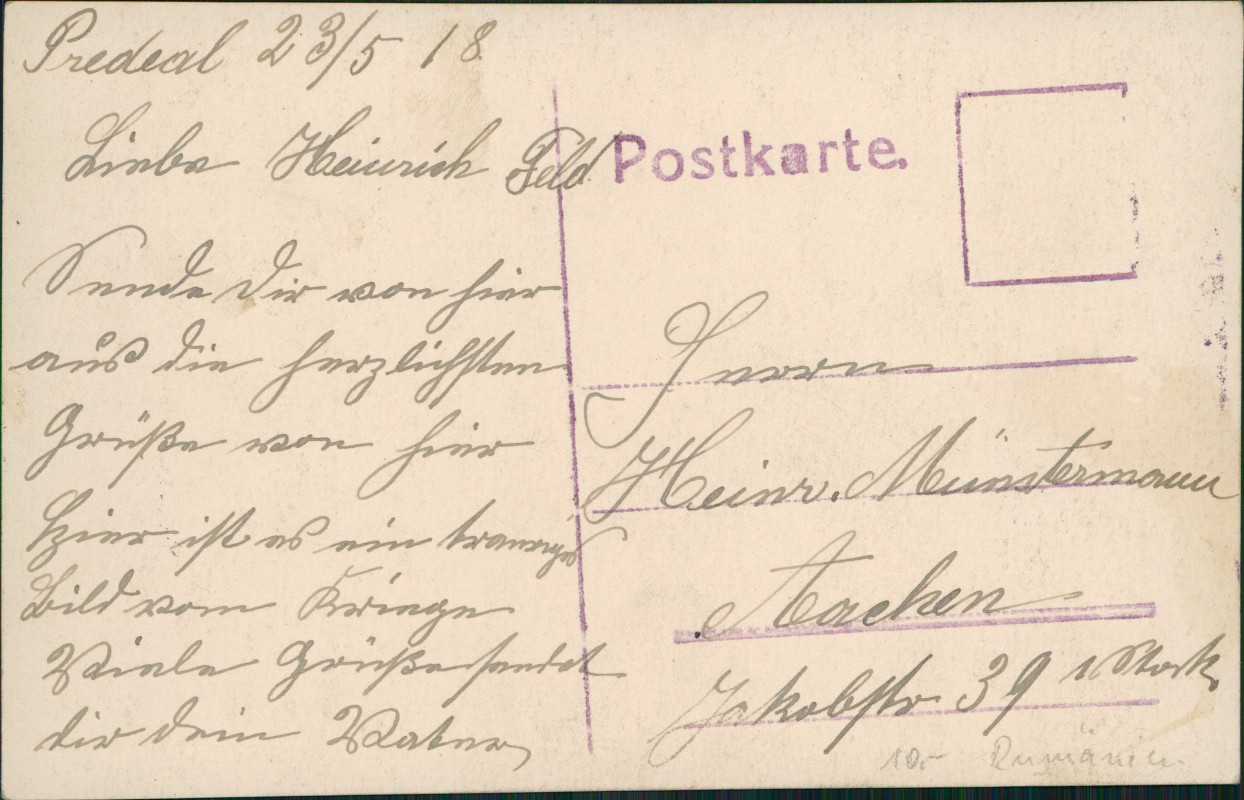 Predeal 23/5 18.
Liebe Heinrich Feld
Sende Dir von hier
aus die herzlichsten
Grüße von hier
Hier ist es ein trauriges
Bild vom Kriege
Viele Grüße sendet
dir dein Vater,
Postkarte.
Herrn
Heinr. Münstermann
Aachen
Jakobstr 39 1 Stock
10.- Rumänien